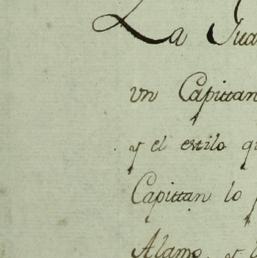 La Gua
un Capittan
y el estilo q
Capittan lo
Alamo, y